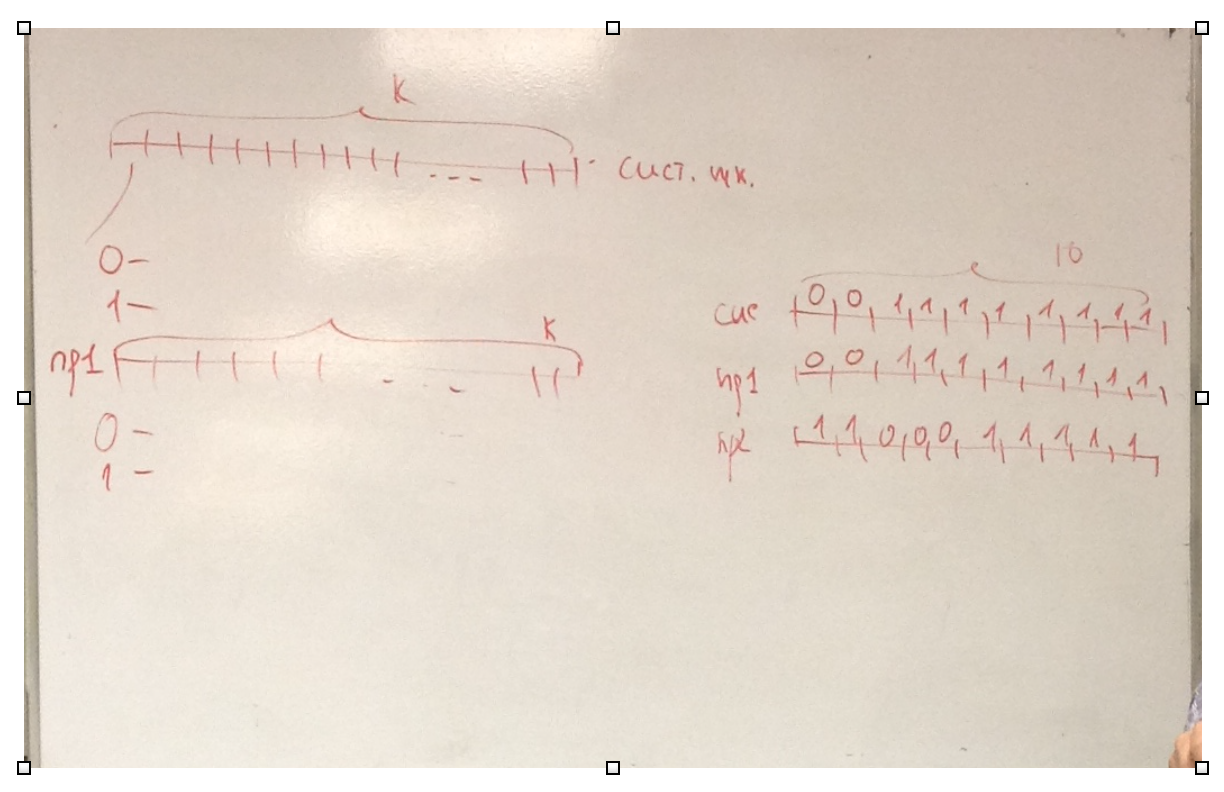 K
сист. щк.
0 –
1 –
K
пр1
0 –
1 –
10
сис 0 0 1 1 1 1 1 1 1 1
пр1 0 0 1 1 1 1 1 1 1 1
пр2 1 1 0 0 0 1 1 1 1 1